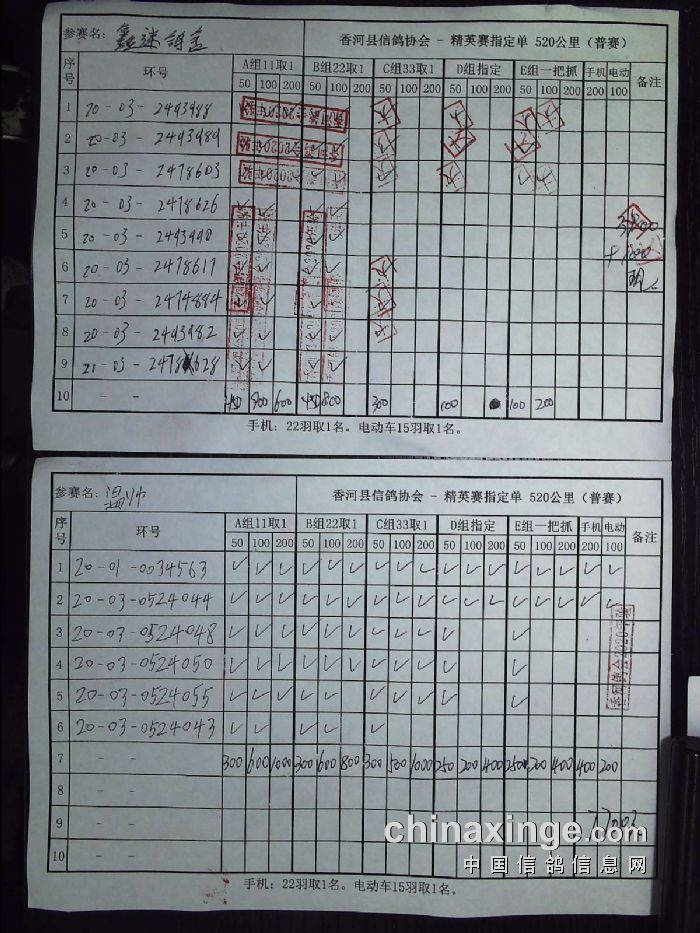 参赛名: 鑫迷鸽舍 香河县信鸽协会 - 精英赛指定单 520公里（普赛）
序号 环号 A组11取1 B组22取1 C组33取1 D组指定 E组一把抓 手机 电动 备注
50 100 200 50 100 200 50 100 200 50 100 200 50 100 200 200 100
1 20-03-2493988
2 20-03-2493989
3 20-03-2478603
4 20-03-2478626
5 20-03-
6 20-03-2478617
7 20-03-2474884
8 20-03-2493982
9 20-03-2478628
10 - - 450 800 600 450 800 300 100 100 200
手机: 22羽取1名。电动车15羽取1名。
参赛名: 温帅 香河县信鸽协会 - 精英赛指定单 520公里（普赛）
序号 环号 A组11取1 B组22取1 C组33取1 D组指定 E组一把抓 手机 电动 备注
50 100 200 50 100 200 50 100 200 50 100 200 50 100 200 200 100
1 20-01-0034563 ✓ ✓ ✓ ✓ ✓ ✓ ✓ ✓ ✓ ✓ ✓ ✓ ✓ ✓ ✓ ✓ ✓
2 20-03-0524044 ✓ ✓ ✓ ✓ ✓ ✓ ✓ ✓ ✓ ✓ ✓ ✓ ✓ ✓ ✓ ✓ ✓
3 20-03-0524048 ✓ ✓ ✓ ✓ ✓ ✓ ✓ ✓ ✓ ✓ ✓
4 20-03-0524050 ✓ ✓ ✓ ✓ ✓ ✓ ✓ ✓ ✓ ✓ ✓
5 20-03-0524055 ✓ ✓ ✓ ✓ ✓ ✓ ✓ ✓ ✓ ✓
6 20-03-0524043 ✓ ✓ ✓ ✓ ✓
7 - - 300 600 1000 300 600 800 300 500 1000 250 200 400 250 200 400 400 200
8 - -
9 - -
10 - -
chinaxinge.com
中国信鸽信息网
手机: 22羽取1名。电动车15羽取1名。